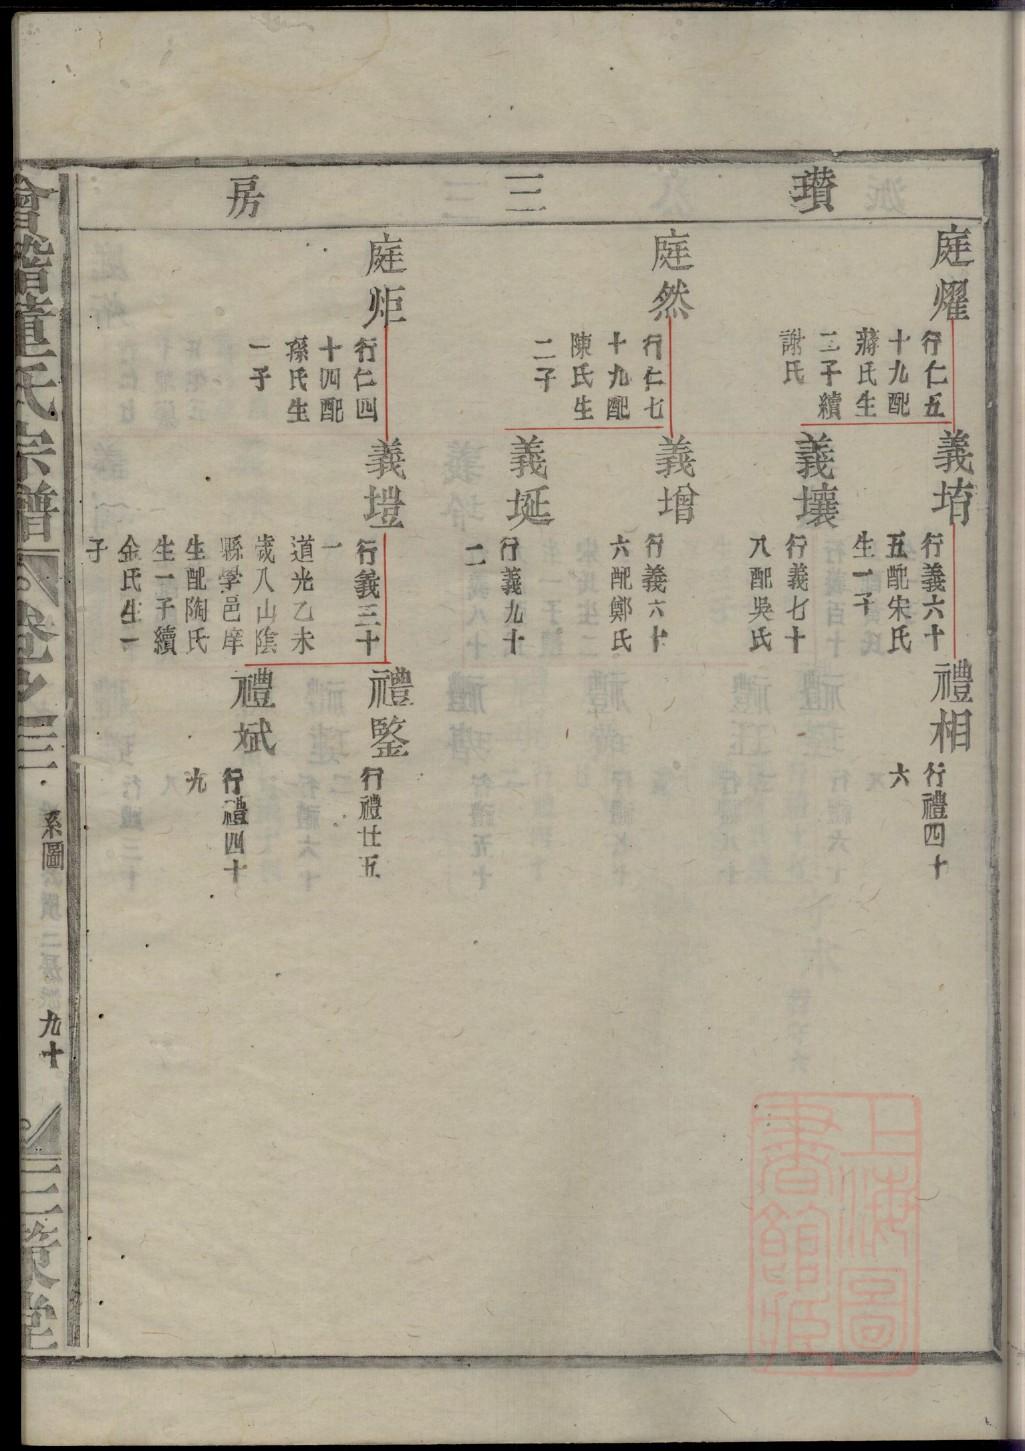 瓚三房
庭燿
行仁五
十九配
蔣氏生
二子續
謝氏
庭然
行仁七
十九配
陳氏生
二子
庭炬
行仁四
十四配
孫氏生
一子
義堉
行義六十
五配宋氏
生一子
義壤
行義七十
八配吳氏
義增
行義六十
六配鄭氏
義埏
行義九十
二
義塏
行義三十
一
道光乙未
歲入山陰
縣學邑庠
生配陶氏
生一子續
金氏生一
子
禮相
行禮四十
六
禮鑒
行禮廿五
禮斌
行禮四十
九
會稽董氏宗譜
卷之三
系圖
九十
三策堂
上海圖
書館藏